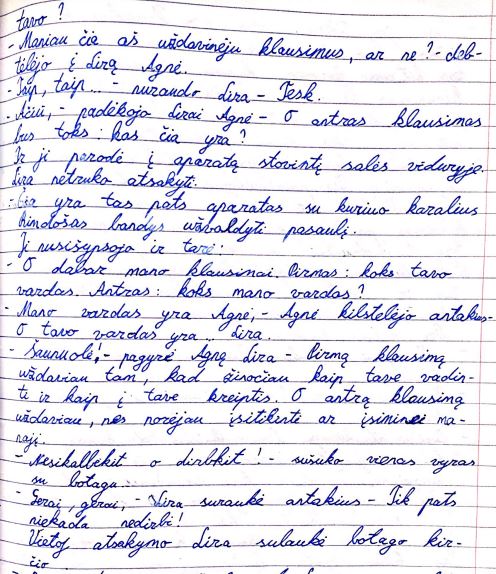 tavo?
- Maniau čia aš uždavinėju klausimus, ar ne? - dėb-
telėjo į Lirą Agnė.
- Taip, taip... - nurando Lira - Tęsk.
- Ačiū, - padėkojo Lirai Agnė - O antras klausimas
bus toks: kas čia yra?
Ir ji parodė į aparatą stovintį salės viduryje.
Lira netruko atsakyti:
- Čia yra tas pats aparatas su kuriuo karalius
Rindošas bandys užvaldyti pasaulį.
Ji nusišypsojo ir tarė:
- O dabar mano klausimai. Pirmas: koks tavo
vardas. Antras: koks mano vardas?
- Mano vardas yra Agnė, - Agnė kilstelėjo antakius -
O tavo vardas yra... Lira.
- Šaunuolė! - pagyrė Agnę Lira - Pirmą klausimą
uždaviau tam, kad žinočiau kaip tave vadin-
ti ir kaip į tave kreiptis. O antrą klausimą
uždaviau, nes norėjau įsitikinti ar įsiminei ma-
nąjį.
- Nesikalbėkit o dirbkit! - sušuko vienas vyras
su botagu.
- Gerai, gerai, - Lira suraukė antakius - Tik pats
niekada nedirbi!
Vietoj atsakymo Lira sulaukė botago kir-
čio